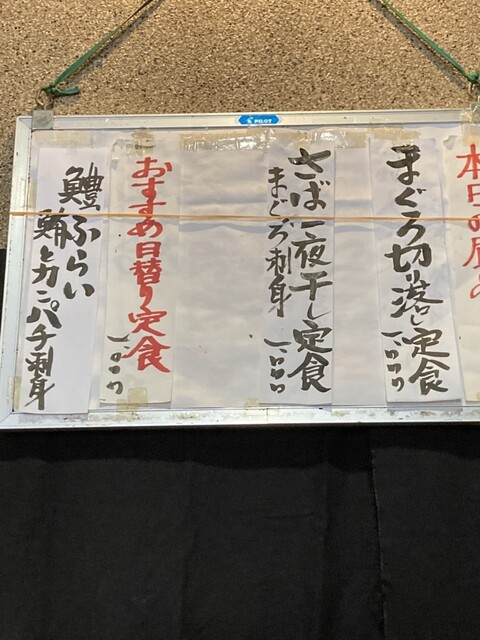 PILOT
本日の
まぐろ切り落し定食
一、〇〇〇
さば一夜干し定食
まぐろ刺身
一、〇〇〇
おすすめ日替り定食
一、〇〇〇
鱧ふらい
鮪とカンパチ刺身